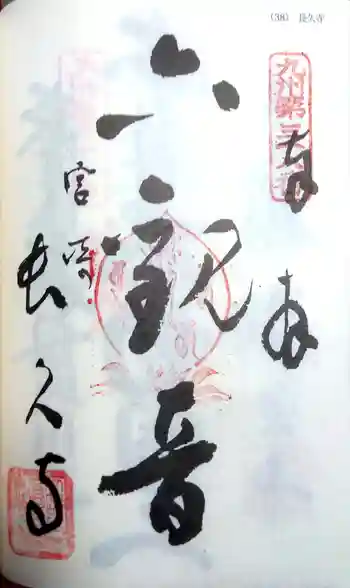 (38) 長久寺
九州第三十八番
奉拝
六観音
宮崎
長久寺